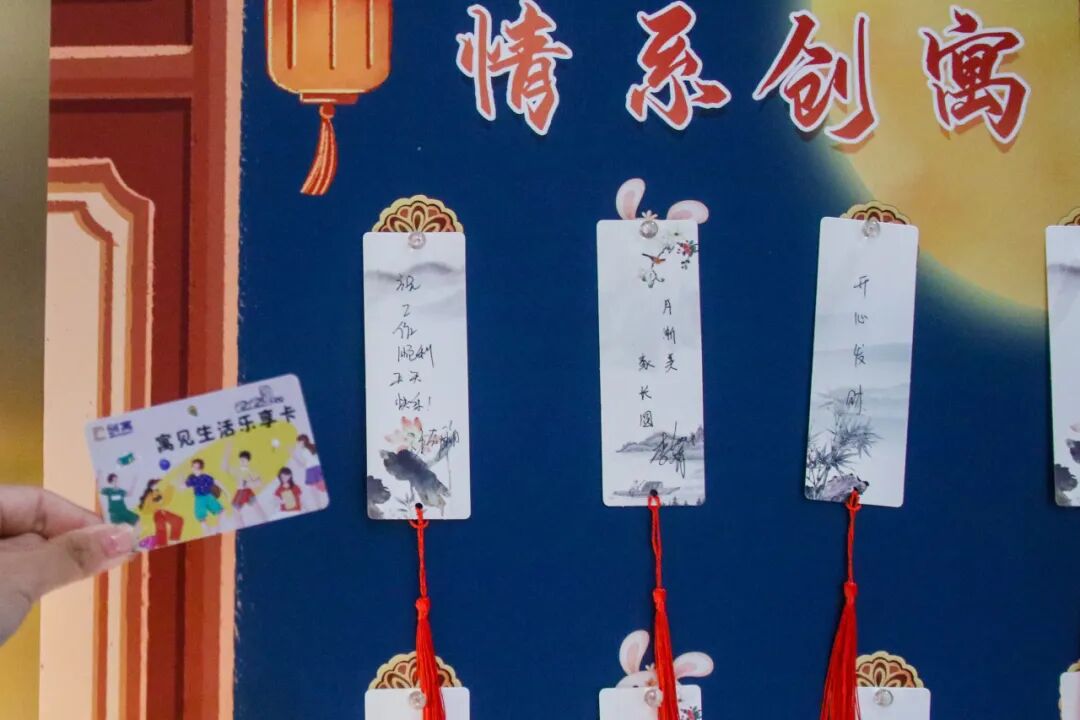 情系创寓
祝工作顺利天天快乐!
月渐美
家长圆
开心发财
创寓
寓见生活乐享卡